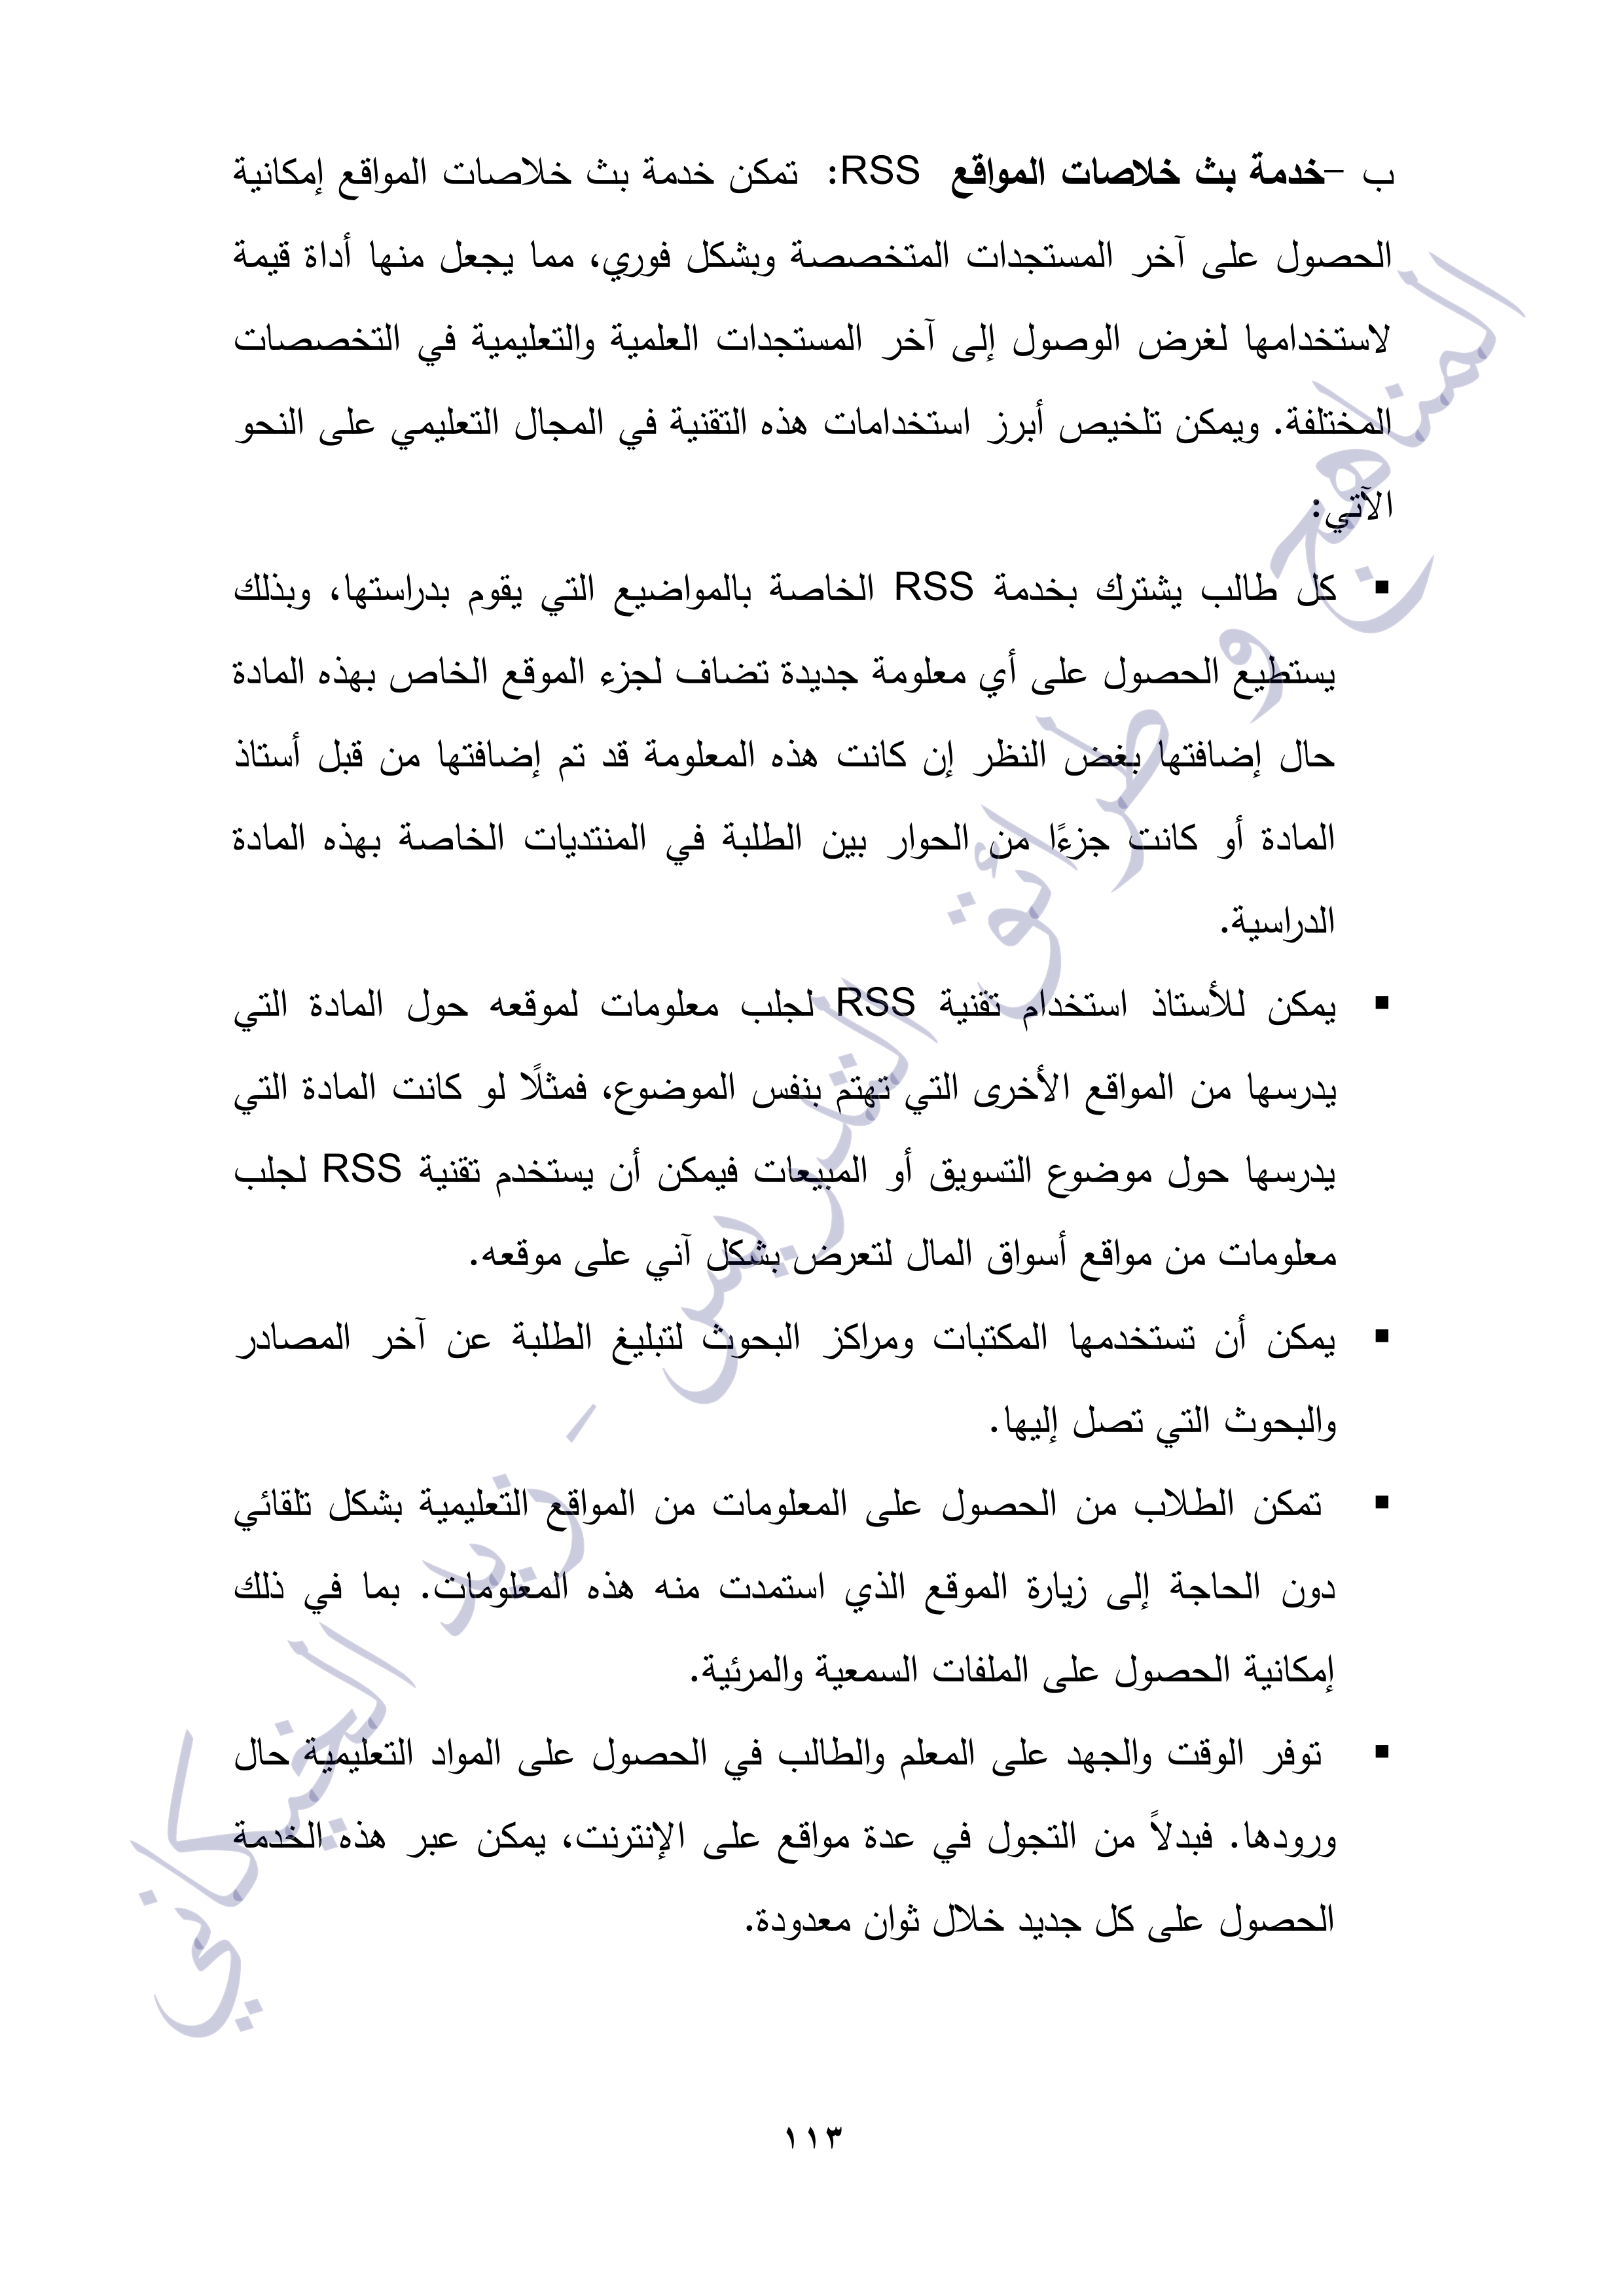 ب –خدمة بث خلاصات المواقع RSS: تمكن خدمة بث خلاصات المواقع إمكانية
الحصول على آخر المستجدات المتخصصة وبشكل فوري، مما يجعل منها أداة قيمة
لاستخدامها لغرض الوصول إلى آخر المستجدات العلمية والتعليمية في التخصصات
المختلفة. ويمكن تلخيص أبرز استخدامات هذه التقنية في المجال التعليمي على النحو
الآتي:
▪ كل طالب يشترك بخدمة RSS الخاصة بالمواضيع التي يقوم بدراستها، وبذلك
يستطيع الحصول على أي معلومة جديدة تضاف لجزء الموقع الخاص بهذه المادة
حال إضافتها بغض النظر إن كانت هذه المعلومة قد تم إضافتها من قبل أستاذ
المادة أو كانت جزءًا من الحوار بين الطلبة في المنتديات الخاصة بهذه المادة
الدراسية.
▪ يمكن للأستاذ استخدام تقنية RSS لجلب معلومات لموقعه حول المادة التي
يدرسها من المواقع الأخرى التي تهتم بنفس الموضوع، فمثلًا لو كانت المادة التي
يدرسها حول موضوع التسويق أو المبيعات فيمكن أن يستخدم تقنية RSS لجلب
معلومات من مواقع أسواق المال لتعرض بشكل آني على موقعه.
▪ يمكن أن تستخدمها المكتبات ومراكز البحوث لتبليغ الطلبة عن آخر المصادر
والبحوث التي تصل إليها.
▪ تمكن الطلاب من الحصول على المعلومات من المواقع التعليمية بشكل تلقائي
دون الحاجة إلى زيارة الموقع الذي استمدت منه هذه المعلومات. بما في ذلك
إمكانية الحصول على الملفات السمعية والمرئية.
▪ توفر الوقت والجهد على المعلم والطالب في الحصول على المواد التعليمية حال
ورودها. فبدلاً من التجول في عدة مواقع على الإنترنت، يمكن عبر هذه الخدمة
الحصول على كل جديد خلال ثوان معدودة.
المناهج و طرائق التدريس - زيد الخيكاني
١١٣